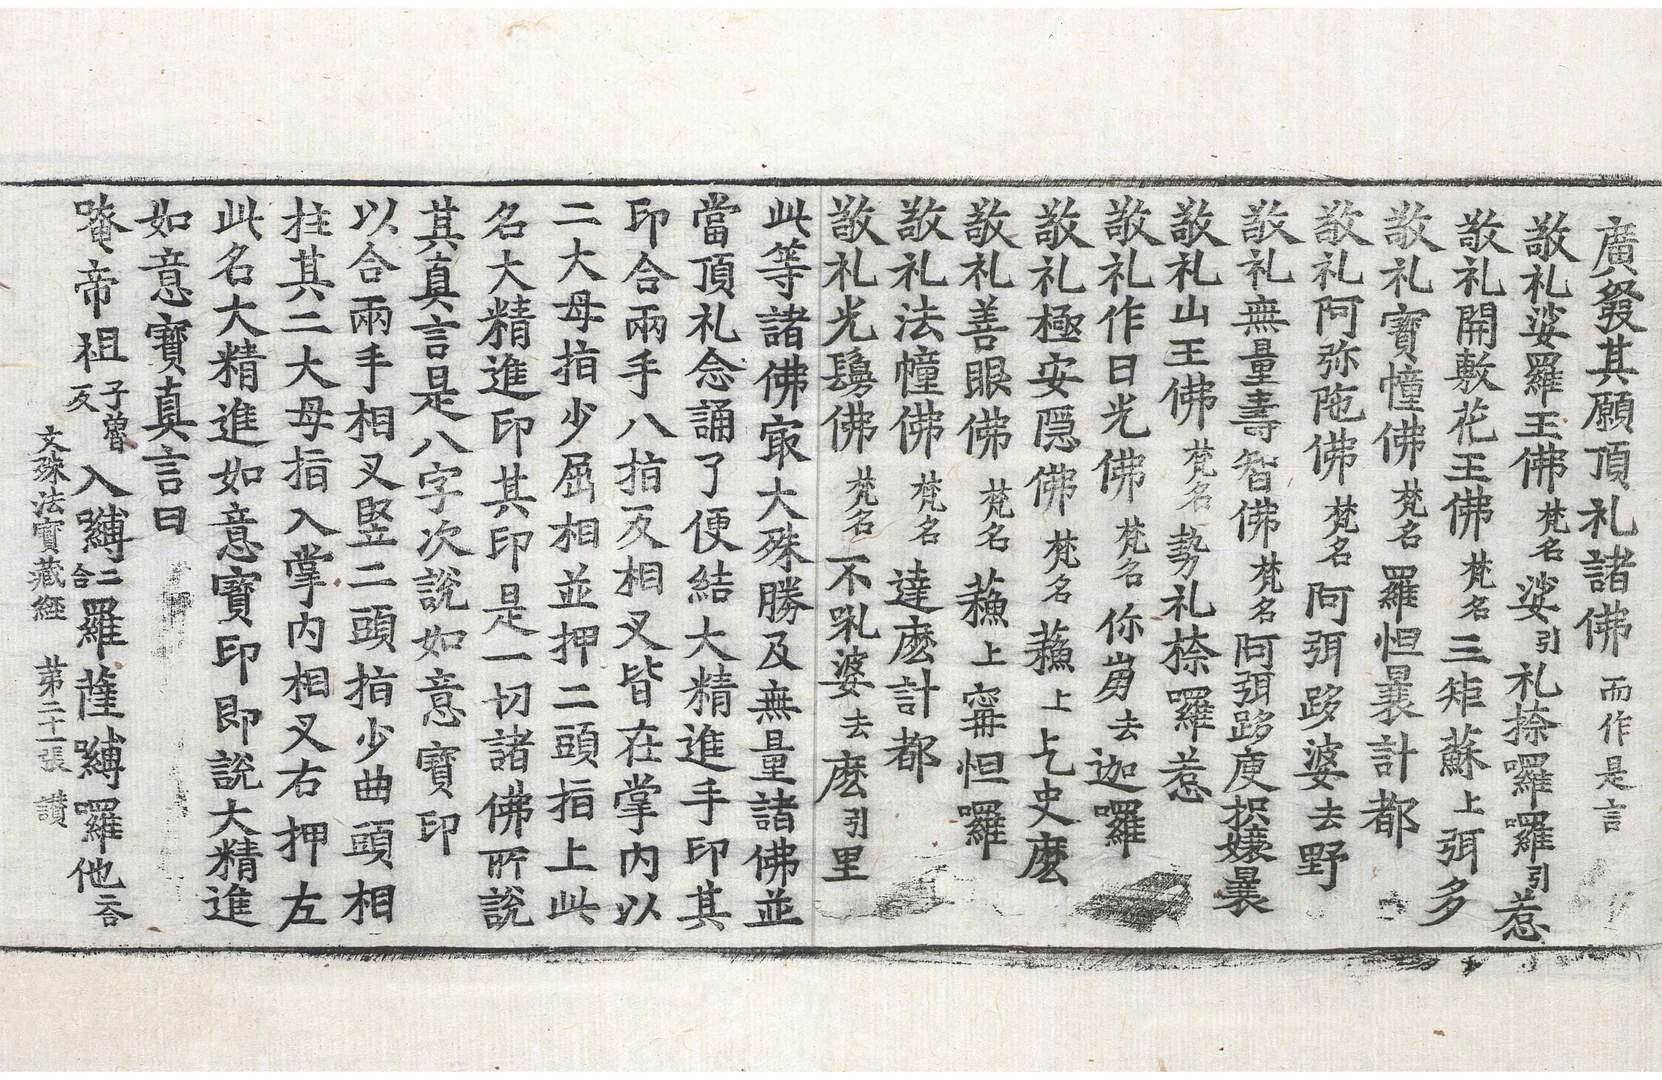 廣發其願頂礼諸佛而作是言
敬礼娑羅王佛梵名娑引礼捺囉囉引惹
敬礼開敷花王佛梵名三矩蘇上弭多
敬礼寶幢佛梵名羅怛曩計都
敬礼阿弥陁佛梵名阿弭跢婆去野
敬礼無量壽智佛梵名阿弭跢庾枳孃曩
敬礼山王佛梵名勢礼捺囉惹
敬礼作日光佛梵名你去迦囉
敬礼極安隱佛梵名蘓上乞史麽
敬礼善眼佛梵名蘓上甯怛囉
敬礼法幢佛梵名達麽計都
敬礼光鬘佛梵名不乳婆去麽引里
此等諸佛冣大殊勝及無量諸佛並
當頂礼念誦了便結大精進手印其
印合兩手八指反相叉皆在掌內以
二大母指少屈相並押二頭指上此
名大精進印其印是一切諸佛所說
其真言是八字次說如意寶印
以合兩手相叉竪二頭指少曲頭相
拄其二大母指入掌內相叉右押左
此名大精進如意寶印即說大精進
如意寶真言曰
唵帝祖子曾反入嚩二合羅薩嚩囉他二合
文殊法寶藏經 第二十一張 讃